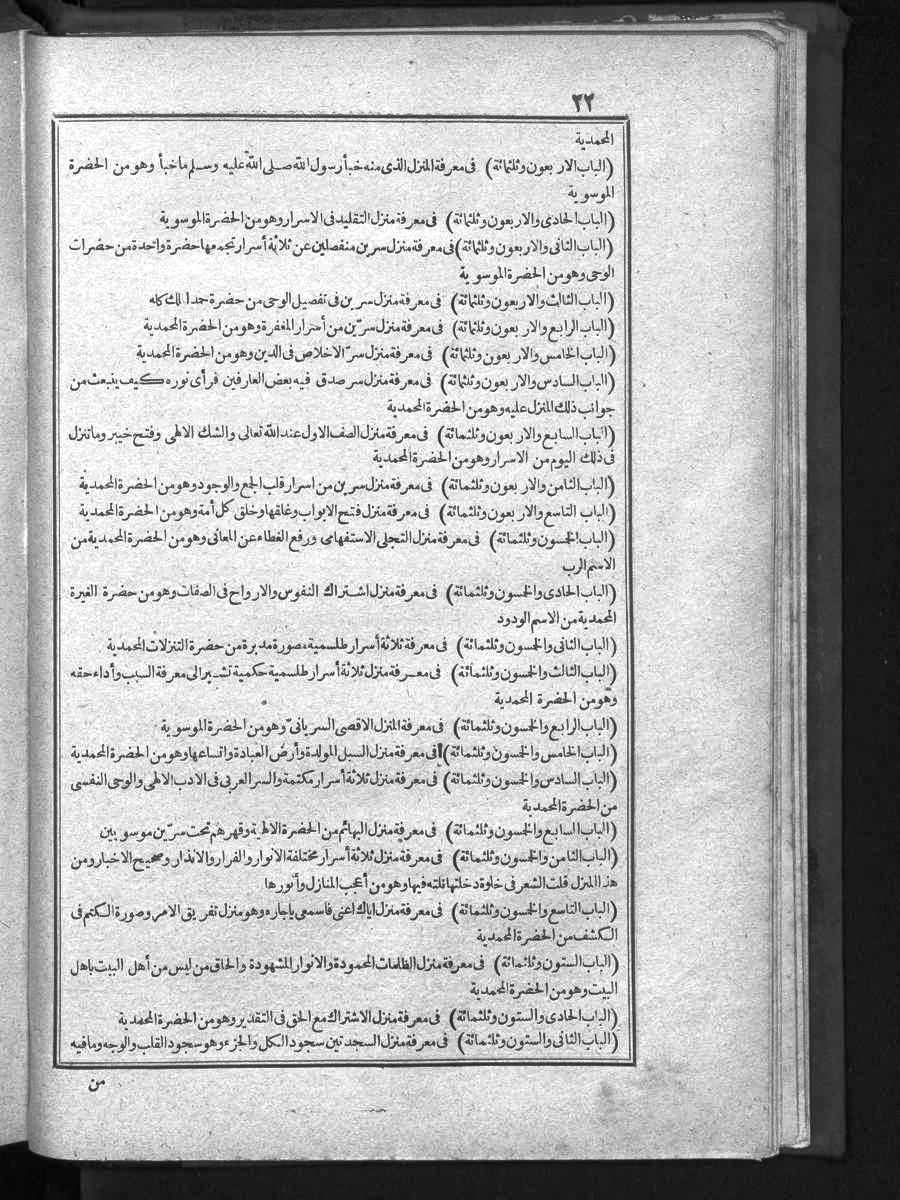 ٢٢
المحمدية
(الباب الاربعون وثلثمائة) فى معرفة المنزل الذى منه خبأ رسول الله صلى الله عليه وسلم ما خبأ وهو من الحضرة
الموسوية
(الباب الحادى والاربعون وثلثمائة) فى معرفة منزل التقليد فى الاسرار وهو من الحضرة الموسوية
(الباب الثانى والاربعون وثلثمائة) فى معرفة منزل سرين منفصلين عن ثلاثة أسرار تجمعها حضرة واحدة من حضرات
الوحى وهو من الحضرة الموسوية
(الباب الثالث والاربعون وثلثمائة) فى معرفة منزل سرين فى تفصيل الوحى من حضرة حمد الملك كله
(الباب الرابع والاربعون وثلثمائة) فى معرفة منزل سرّين من أسرار المغفرة وهو من الحضرة المحمدية
(الباب الخامس والاربعون وثلثمائة) فى معرفة منزل سرّ الاخلاص فى الدين وهو من الحضرة المحمدية
(الباب السادس والاربعون وثلثمائة) فى معرفة منزل سر صدق فيه بعض العارفين فرأى نوره كيف ينبعث من
جوانب ذلك المنزل عليه وهو من الحضرة المحمدية
(الباب السابع والاربعون وثلثمائة) فى معرفة منزل الصف الاول عند الله تعالى والشك الالهى وفتح خيبر وما تنزل
فى ذلك اليوم من الاسرار وهو من الحضرة المحمدية
(الباب الثامن والاربعون وثلثمائة) فى معرفة منزل سرين من اسرار قلب الجمع والوجود وهو من الحضرة المحمدية
(الباب التاسع والاربعون وثلثمائة) فى معرفة منزل فتح الابواب وغلقها وخلق كل أمة وهو من الحضرة المحمدية
(الباب الخمسون وثلثمائة) فى معرفة منزل التجلى الاستفهامى ورفع الغطاء عن المعانى وهو من الحضرة المحمدية من
الاسم الرب
(الباب الحادى والخمسون وثلثمائة) فى معرفة منزل اشتراك النفوس والارواح فى الصفات وهو من حضرة الغيرة
المحمدية من الاسم الودود
(الباب الثانى والخمسون وثلثمائة) فى معرفة ثلاثة أسرار طلسمية مصورة مدبرة من حضرة التنزلات المحمدية
(الباب الثالث والخمسون وثلثمائة) فى معرفة منزل ثلاثة أسرار طلسمية حكمية تشير الى معرفة السبب وأداء حقه
وهو من الحضرة المحمدية
(الباب الرابع والخمسون وثلثمائة) فى معرفة المنزل الاقصى السريانىّ وهو من الحضرة الموسوية
(الباب الخامس والخمسون وثلثمائة) فى معرفة منزل السبل المولدة وأرض العبادة واتساعها وهو من الحضرة المحمدية
(الباب السادس والخمسون وثلثمائة) فى معرفة منزل ثلاثة أسرار مكتمة والسر العربى فى الادب الالهى والوحى النفسى
من الحضرة المحمدية
(الباب السابع والخمسون وثلثمائة) فى معرفة منزل البهائم من الحضرة الالهية وقهرهم تحت سرّين موسويين
(الباب الثامن والخمسون وثلثمائة) فى معرفة منزل ثلاثة أسرار مختلفة الانوار والفرار والانذار وصحيح الاخبار ومن
هذا المنزل قلت الشعر فى خلوة دخلتها نلته فيها وهو من أعجب المنازل وأنورها
(الباب التاسع والخمسون وثلثمائة) فى معرفة منزل اياك اعنى فاسمعى ياجاره وهو منزل تفريق الامر وصورة الكتم فى
الكشف من الحضرة المحمدية
(الباب الستون وثلثمائة) فى معرفة منزل الظلمات المحمودة والانوار المشهودة والحاق من ليس من أهل البيت باهل
البيت وهو من الحضرة المحمدية
(الباب الحادى والستون وثلثمائة) فى معرفة منزل الاشتراك مع الحق فى التقدير وهو من الحضرة المحمدية
(الباب الثانى والستون وثلثمائة) فى معرفة منزل السجدتين سجود الكل والجزء وهو سجود القلب والوجه وما فيه
من